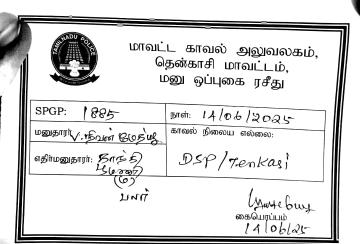 TAMILNADU POLICE
மாவட்ட காவல் அலுவலகம்,
தென்காசி மாவட்டம்,
மனு ஒப்புகை ரசீது
SPGP: 1885
நாள்: 14/06/2025
மனுதாரர்: V.
காவல் நிலைய எல்லை:
DSP/Tenkasi
எதிர்மனுதாரர்: காந்தி
(ம)
பலர்
கையொப்பம்
14/06/25